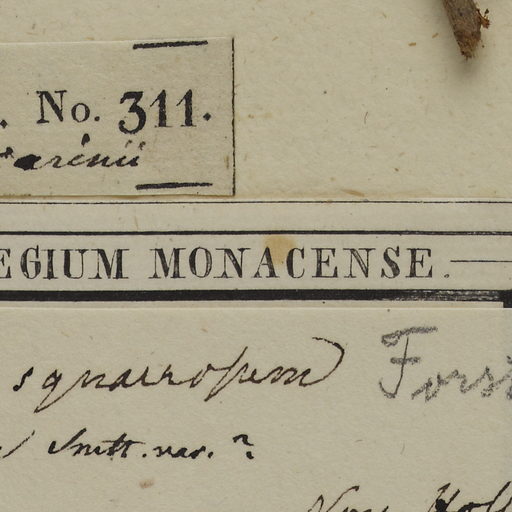 . No. 311.
arinii
EGIUM MONACENSE.
squarrosum Forst
Smith. var. ?
Nov. Holl